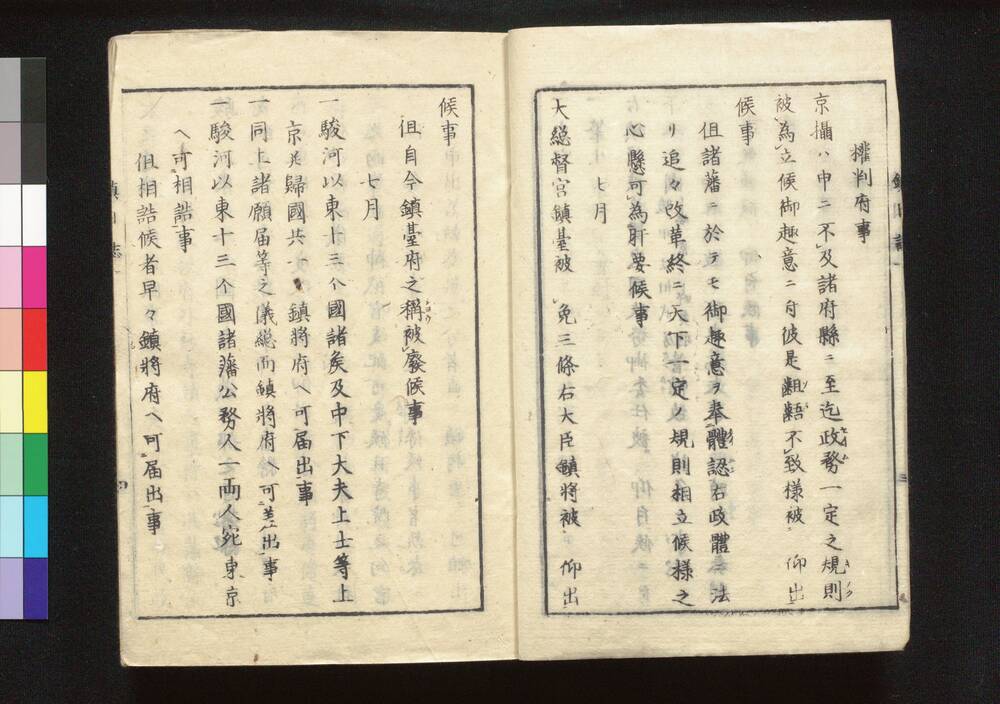 權判府事
京攝ハ申ニ不及諸府縣ニ至迄政務一定之規則
被為立候御趣意ニ付彼是齟齬不致様被 仰出
候事
但諸藩ニ於テモ御趣意ヲ奉體認右政體ニ法
リ追々改革終ニ天下一定ノ規則相立候様之
心懸可為肝要候事
七月
大總督宮鎮臺被 免三條右大臣鎮將被 仰出
候事
但自今鎮臺府之稱被廢候事
七月
一駿河以東十三个國諸矦及中下大夫上士等上
京并歸國共鎮將府ヘ可届出事
一同上諸願届等之儀總而鎮將府ヘ可差出事
一駿河以東十三个國諸藩公務人一両人宛東京
ヘ可相詰事
但相詰候者早々鎮將府ヘ可届出事